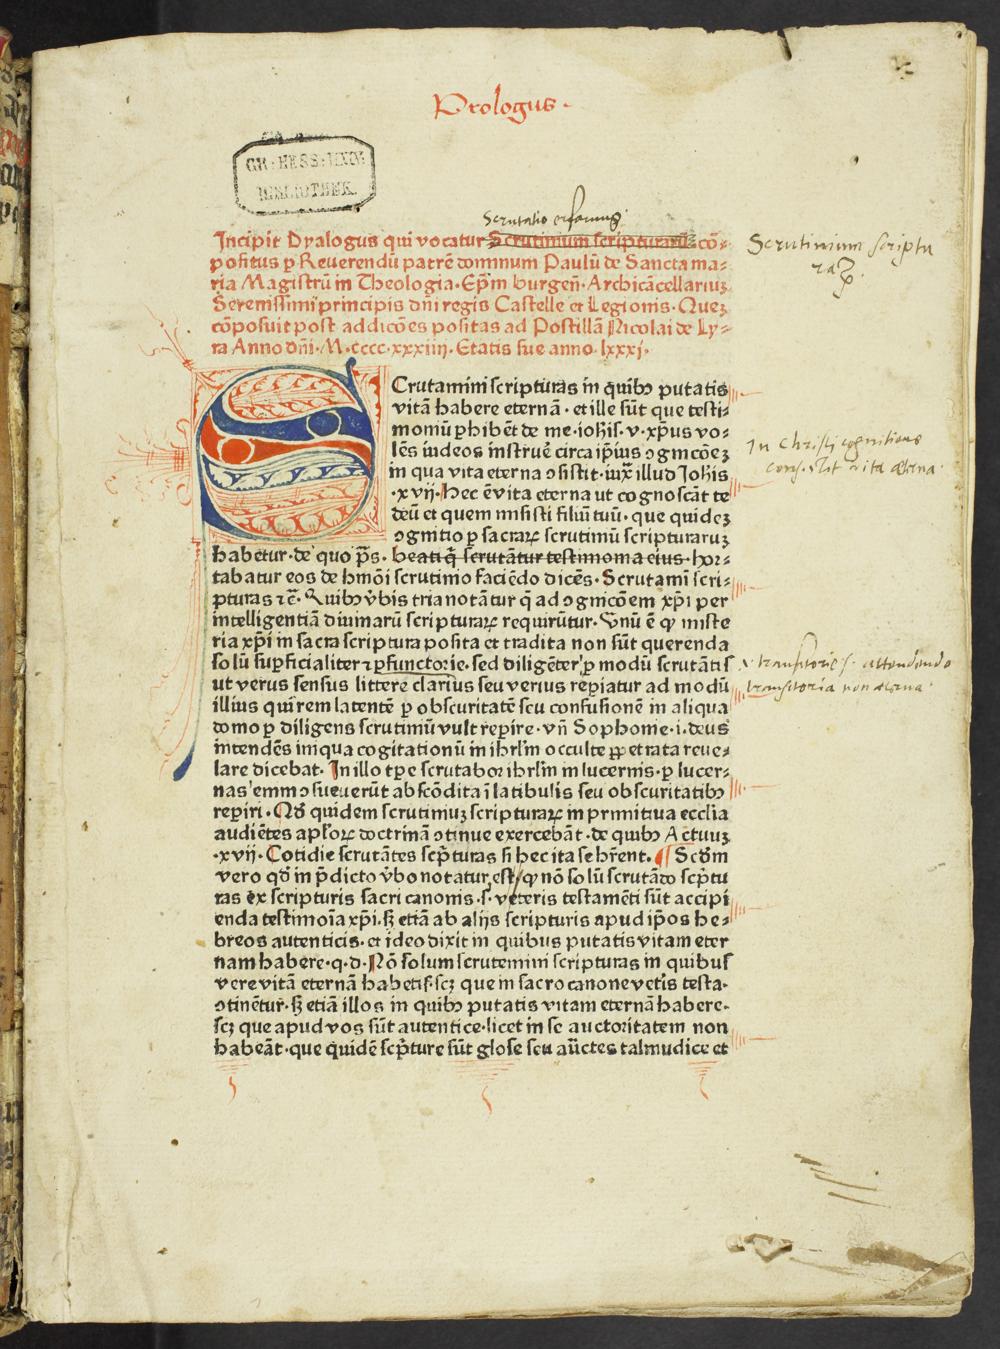 Prologus.
GR: HESS: UNIV:
BIBLIOTHEK.
Incipit Dyalogus qui vocatur Scrutinium scripturarū cō⸗
positus ꝑ Reuerendū patrē domnum Paulū de Sancta ma⸗
ria Magistrū in Theologia. Ep̄m burgen̄. Archicācellariuȝ
Serenissimi principis dn̄i regis Castelle et Legionis. Queȝ
cōposuit post addicōes positas ad Postillā Nicolai de Ly⸗
ra Anno dn̄i. M.cccc.xxxiiij. Etatis sue anno. lxxxj.
Scrutinium scriptu
raꝝ.
SCrutamini scripturas in quibꝰ putatis
vitā habere eternā. et ille sūt que testi⸗
moniū ꝑhibēt de me. ioh̄is. v. xp̄us vo⸗
lēs iudeos instruē circa ip̄ius ↄgnicōeȝ
in qua vita eterna ↄsistit. iux̄ illud Joh̄is
.xvij. Hec ē vita eterna ut cognoscāt te
deū et quem misisti filiū tuū. que quideȝ
ↄgnitio ꝑ sacraꝝ scrutiniū scripturaruȝ
In Christi cognitione
consistit vita æterna.
habetur. de quo p̄s. beati q̄ scrutātur testimonia eius. hor⸗
tabatur eos de hm̄oi scrutinio faciēdo dicēs. Scrutamī scri⸗
pturas ⁊c̄. Quibꝰ v̄bis tria notātur q̄ ad ↄgnicōem xp̄i per
intelligentiā diuinarū scripturaꝝ requirūtur. Vnū ē ꝙ miste
ria xp̄i in sacra scriptura posita et tradita non sūt querenda
solū suꝑficialiter ⁊ ꝑfunctorie. sed diligēter ꝑ modū scrutātis
ut verus sensus littere clarius seu verius rep̄iatur ad modū
transitorie s. attendendo
transitoria non æterna.
illius qui rem latentē ꝑ obscuritatē seu confusionē in aliqua
domo ꝑ diligens scrutiniū vult rep̄ire. vn̄ Sophonie. i. deus
intendēs iniqua cogitationū in ihrl̄m occulte ꝑpetrata reue⸗
lare dicebat. In illo tp̄e scrutabor ihrl̄m in lucernis. ꝑ lucer⸗
nas emm ↄsueuerūt abscōdita ī latibulis seu obscuritatibꝰ
rep̄iri. Qd̄ quidem scrutiniuȝ scripturaꝝ in prmitiua ecclīa
audiētes apl̄oꝝ doctrinā ↄtinue exercebāt. de quibꝰ Actuuȝ
.xvij. Cotidie scrutātes scp̄turas si hec ita se hr̄ent. ¶ Scd̄m
vero qd̄ in p̄dicto v̄bo notatur est, ꝙ nō solū scrutādo scp̄tu
ras ex scripturis sacri canonis .s. veteris testamēti sūt accipi
enda testimoīa xp̄i. sȝ etiā ab alijs scripturis apud ip̄os he⸗
breos autenticis. et ideo dixit in quibus putatis vitam eter
nam habere. q. d. Nō solum scrutemini scripturas in quibus
vere vitā eternā habetis. scȝ que in sacro canone vetīs testa.
ↄtinētur. sȝ etiā illos in quibꝰ putatis vitam eternā habere.
scȝ que apud vos sūt autentice. licet in se auctoritatem non
habeāt. que quidē scp̄ture sūt glose seu aūctes talmudice et